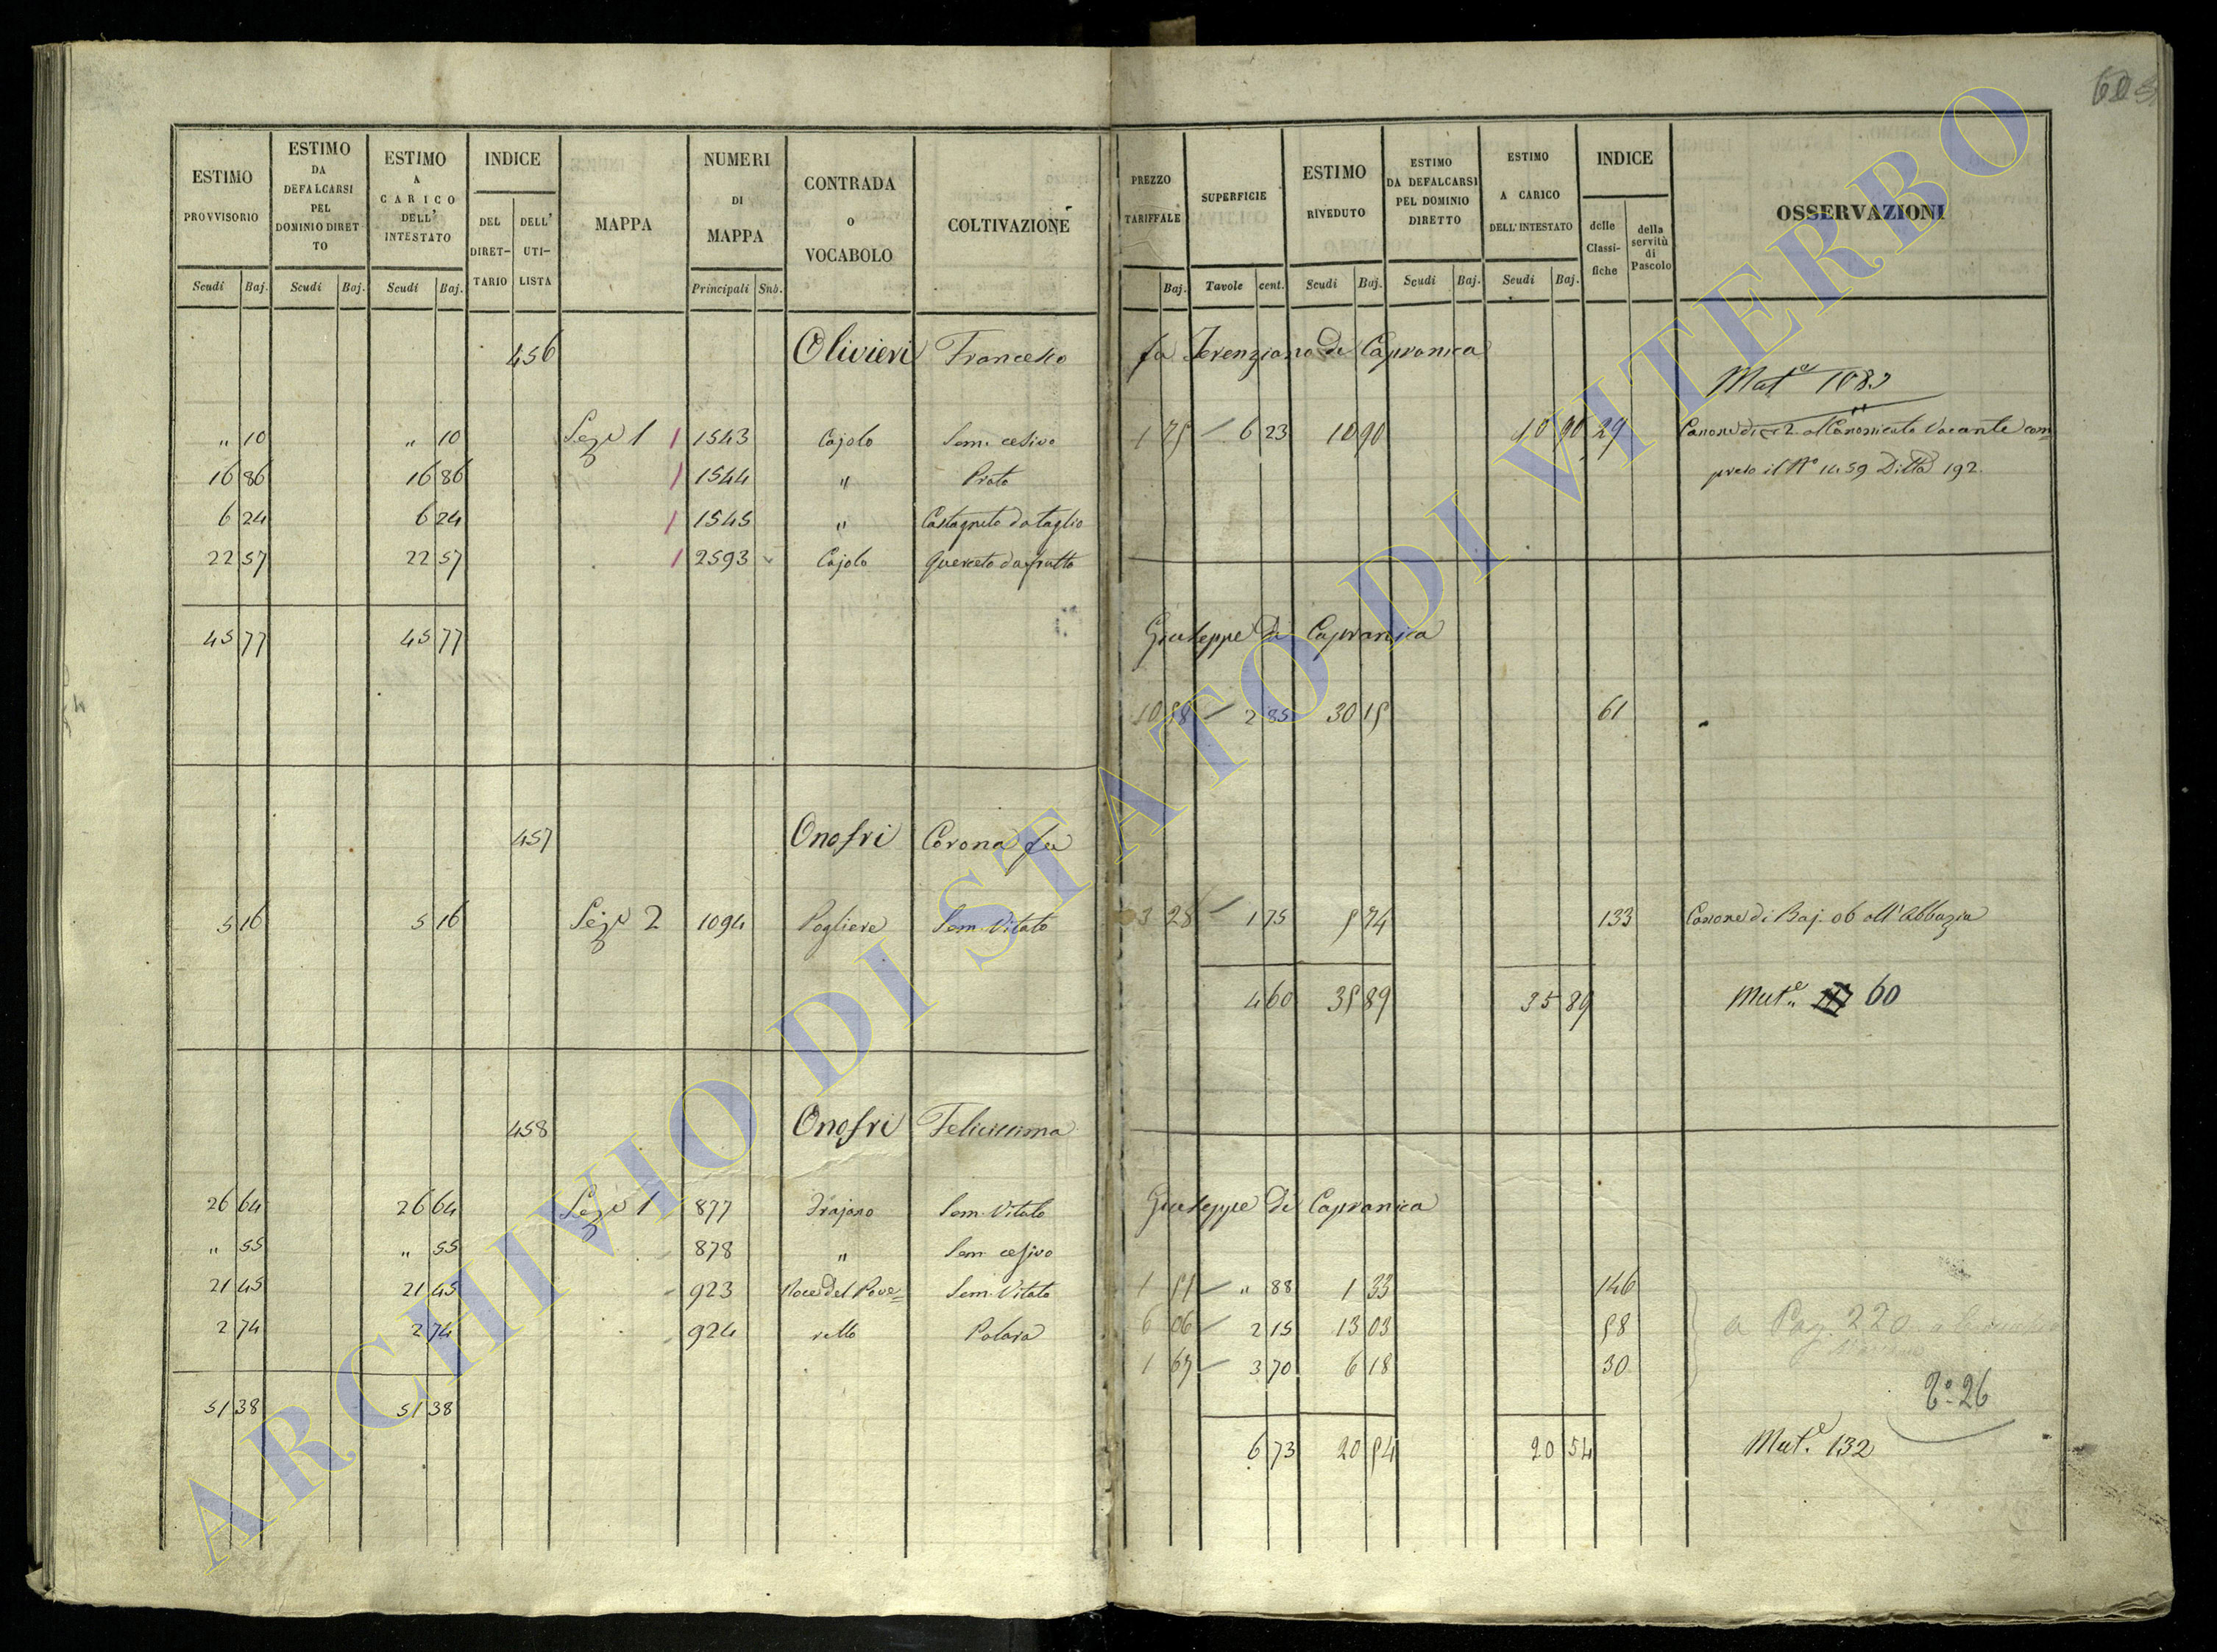 ESTIMO PROVVISORIO Scudi Baj.
ESTIMO DA DEFALCARSI PEL DOMINIO DIRETTO Scudi Baj.
ESTIMO A CARICO DELL' INTESTATO Scudi Baj.
INDICE DEL DIRETTARIO DELL' UTILISTA
MAPPA
NUMERI DI MAPPA Principali Sub.
CONTRADA O VOCABOLO
COLTIVAZIONE
456 Olivieri Francesco
" 10 " 10 Sez.e 1 1 1543 Cajolo Sem. cesivo
16 86 16 86 1 1544 " Prato
6 24 6 24 1 1545 " Castagneto da taglio
22 57 22 57 1 2593 Cajolo Querceto da frutto
45 77 45 77
457 Onofri Corona fu
5 16 5 16 Sez.e 2 1094 Pogliere Sem. Vitato
458 Onofri Felicissima
26 64 26 64 Sez.e 1 877 Trajano Sem. Vitato
" 55 " 55 878 " Sem. cesivo
21 45 21 45 923 Noce del Pove= Sem. Vitato
2 74 2 74 924 rello
51 38 51 38
PREZZO TARIFFALE Baj.
SUPERFICIE Tavole cent.
ESTIMO RIVEDUTO Scudi Baj.
ESTIMO DA DEFALCARSI PEL DOMINIO DIRETTO Scudi Baj.
ESTIMO A CARICO DELL' INTESTATO Scudi Baj.
INDICE delle Classifiche della servitù di Pascolo
OSSERVAZIONI
fu Terenziano di Capranica
Mut.e
1 75 6 23 10 90 10 90 29 Canone di 2 al Canonicato Vacante com=
preso il N° 1459 Ditta 192
Giuseppe di Capranica
10 58 2 85 30 15 61
3 28 1 75 5 74 133 Canone di Baj. 06 all'Abbazia
4 60 35 89 35 89 Mut.e 60
Giuseppe di Capranica
1 51 " 88 1 33 146
6 06 2 15 13 03 58 a Pag. 220
1 67 3 70 6 18 30
26
6 73 20 54 20 54 Mut.e 132
ARCHIVIO DI STATO DI VITERBO